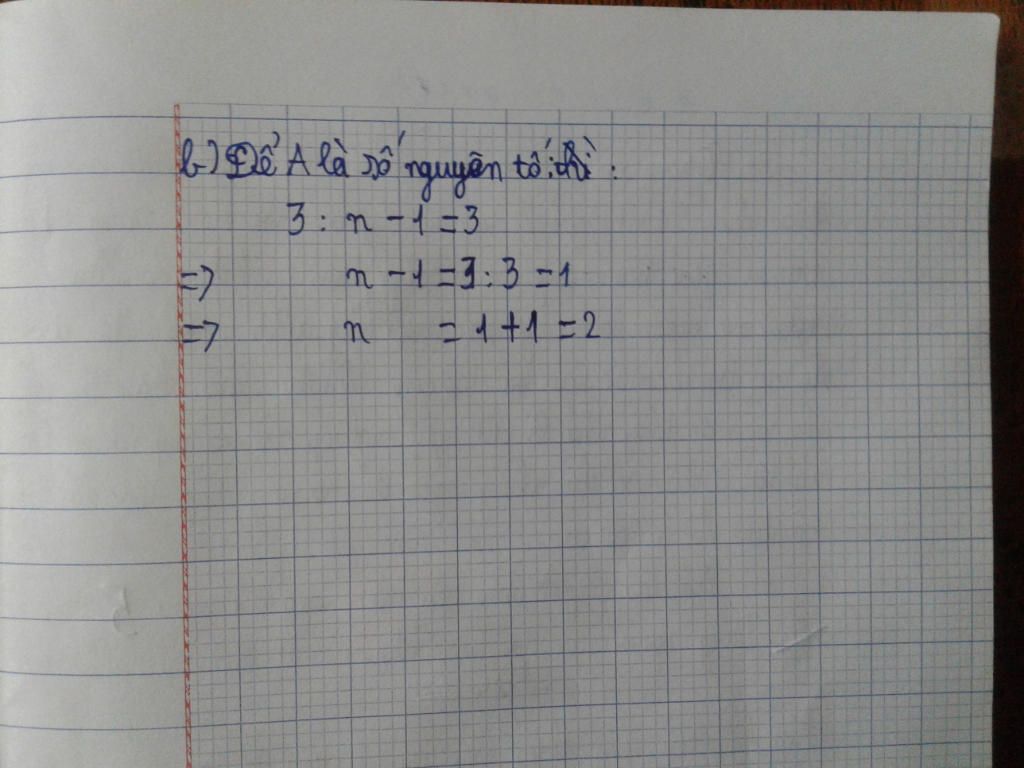 b) Để A là số nguyên tố thì :
3 : n - 1 = 3
=> n - 1 = 3 : 3 = 1
=> n = 1 + 1 = 2